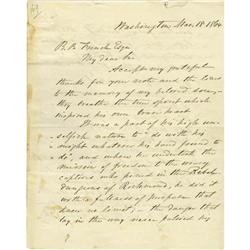 Washington, Mar. 18 1864
B. B. French Esqr
My dear Sir
Accept my grateful
thanks for your note and the lines
to the memory of my beloved son,
they breathe the true spirit which
inspired his own brave heart.
It was a part of his high un-
selfish nature to "do with his
might whatever his hand found to
do", and when he undertook the
mission of freedom to the weary
captives who pined in the Rebel
dungeons of Richmond, he did it
with a fullness of purpose that
knew no limit, the danger that
lay in the way never palsied his